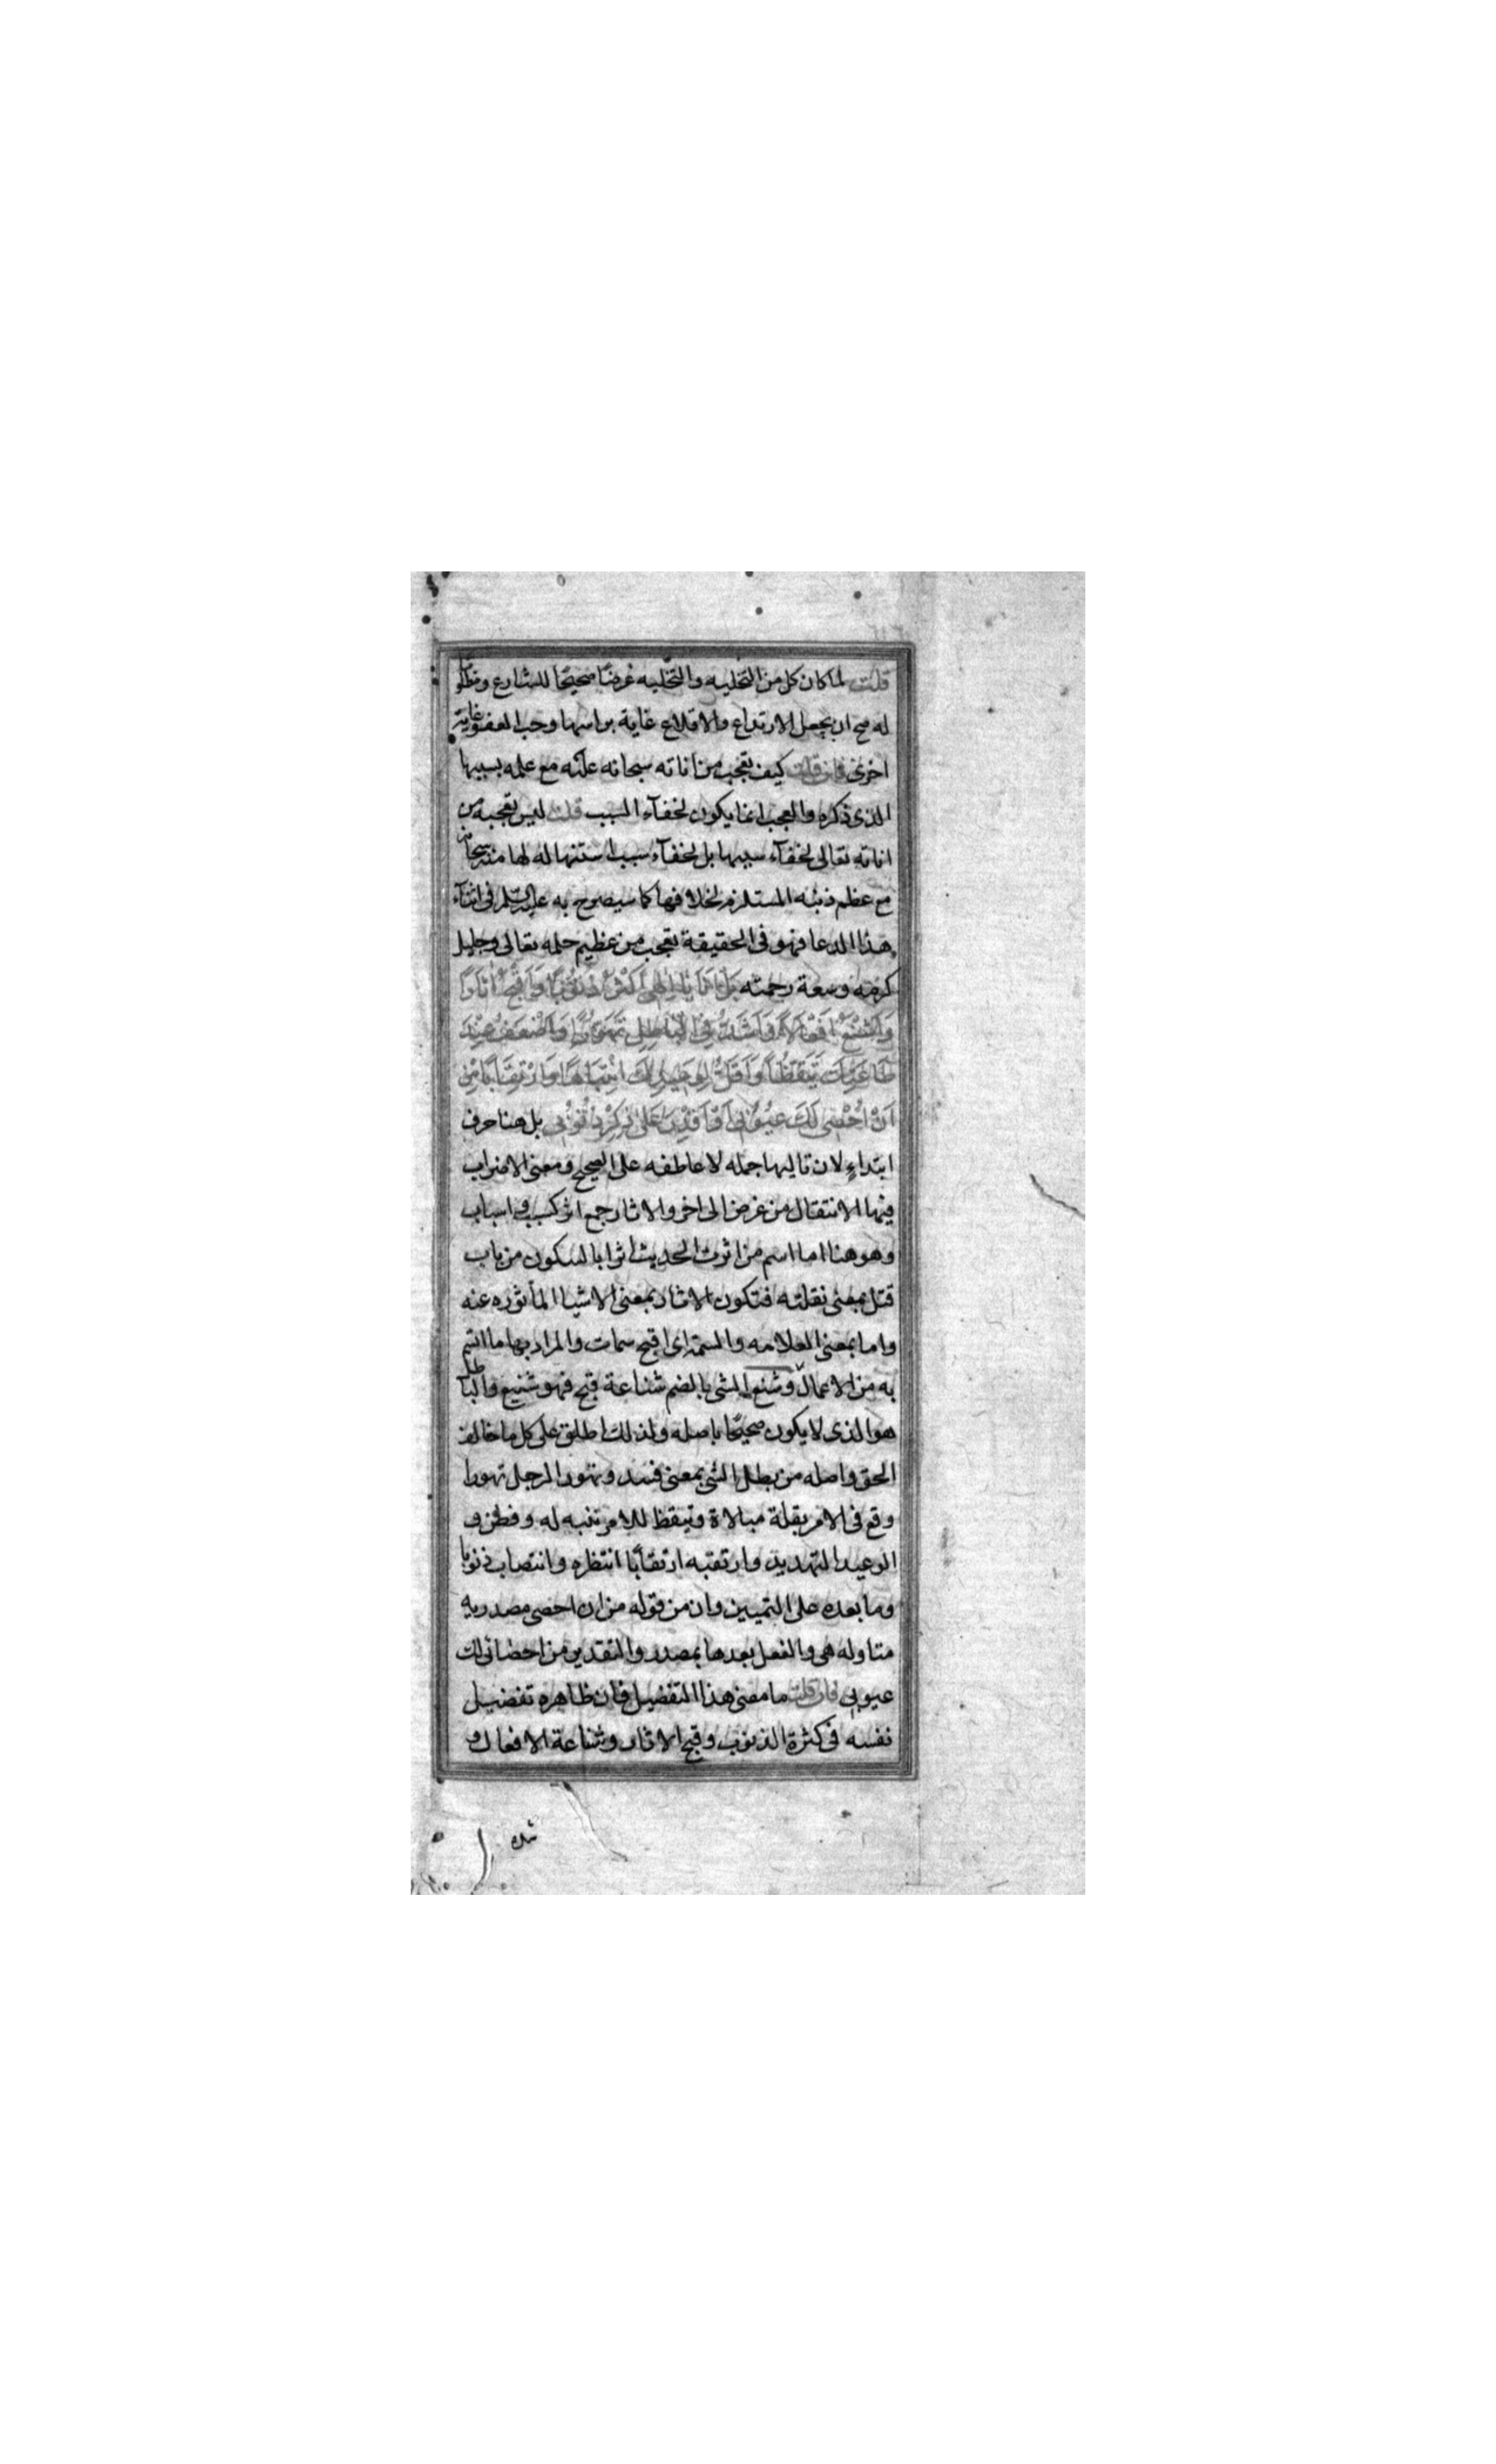 قلت لما كان كل من التخليه والتحليه غرضا صحيحا للشارع ومطلوبا
له صح ان يجعل الارتداع والاقلاع غاية براسها وحب العفو غاية
اخرى فان قلت كيف تعجب من اناته سبحانه عنه مع علمه بسببها
الذى ذكره والعجب انما يكون لخفآء السبب قلت ليس تعجبه من
اناته تعالى لخفآء سببها بل لخفآء سبب استنهاله لها منه سبحانه
مع عظم ذنبه المستلزم لخلافها كما سيصرح به عليه السلم فى اثنآء
هذا الدعا فهو فى الحقيقة تعجب من عظيم حلمه تعالى وجليل
كرمه وسعة رحمته بَلْ اَنَا يَا اِلٰهِى اَكْثَرُ ذُنُوبًا وَاَقْبَحُ اٰثَارًا
وَاَشْنَعُ اَفْعَالًا وَاَشَدُّ فِى الْبَاطِلِ تَهَوُّرًا وَاَضْعَفُ عِنْدَ
طَاعَتِكَ تَيَقُّظًا وَاَقَلُّ لِوَعِيدِكَ انْتِبَاهًا وَارْتِقَابًا مِنْ
اَنْ اُحْصِىَ لَكَ عُيُوبِى اَوْ اَقْدِرَ عَلٰى ذِكْرِ ذُنُوبِى بل هنا حرف
ابتداءٍ لان تاليها جمله لا عاطفه على الصحيح ومعنى الاضراب
فيها الانتقال من غرض الى اخر والاثار جمع اثر كسبب واسباب
وهو هنا اما اسم من اثرت الحديث اثرا بالسكون من باب
قتل بمعنى نقلته فتكون الاثار بمعنى الاشيا المأثوره عنه
واما بمعنى العلامه والسمة اى اقبح سمات والمراد بها ما اتسم
به من الاعمال وشنع الشى بالضم شناعة قبح فهو شنيع والباطل
هو الذى لا يكون صحيحا باصله ولذلك اطلق على كل ما خالف
الحق واصله من بطل الشى بمعنى فسد وتهور الرجل تهورا
وقع فى الامر بقلة مبالاة وتيقظ للامر تنبه له وفطن و
الوعيد التهديد وارتقبه ارتقابًا انتظره وانتصاب ذنوبا
وما بعده على التمييز وان من قوله من ان احصى مصدريه
متاوله هى والفعل بعدها بمصدر والتقدير من احصائى لك
عيوبى فان قلت ما معنى هذا التفضيل فان ظاهره تفضيل
نفسه فى كثرة الذنوب وقبح الاثار وشناعة الافعال و
شده